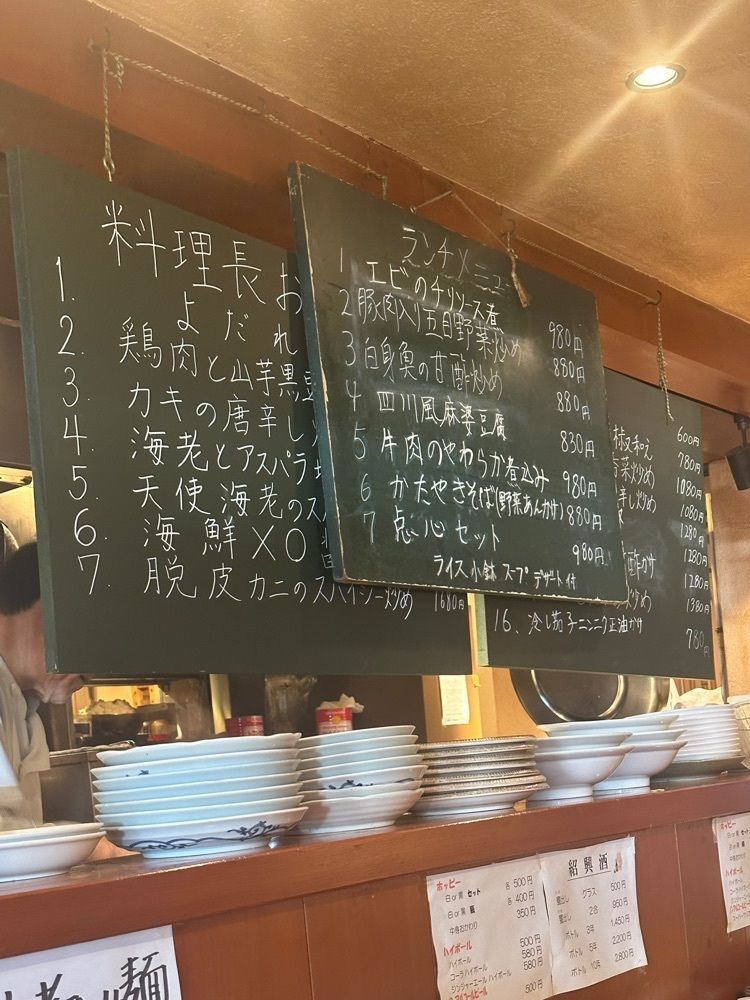 料理長お
1. よだれ
2. 鶏肉と山芋黒豆
3. カキの唐辛し
4. 海老とアスパラ
5. 天使海老のス
6. 海鮮XO
7. 脱皮カニのスパイシー炒め 1680円
ランチメニュー
1 エビのチリソース煮 980円
2 豚肉入り五目野菜炒め 880円
3 白身魚の甘酢炒め 880円
4 四川風麻婆豆腐 830円
5 牛肉のやわらか煮込み 980円
6 かたやきそば(野菜あんかけ) 880円
7 点心セット 980円
ライス 小鉢 スープ デザート付
椒和え 600円
菜炒め 780円
し炒め 1080円
1080円
1280円
酢かけ 1280円
1280円
炒め 1380円
16、冷し茄子ニンニク正油かけ 780円
ホッピー
白or黒 セット 各500円
白or黒 瓶 各400円
中各おかわり 350円
ハイボール
ハイボール 500円
コーラハイボール 580円
ジンジャーエールハイボール 580円
500円
紹興酒
甕出し グラス 500円
甕出し 2合 950円
ボトル 3年 1,450円
ボトル 5年 2,200円
ボトル 10年 2,800円
ホッピー
白or黒
白or黒
中各おかわり
ハイボール
ハイボール
麺